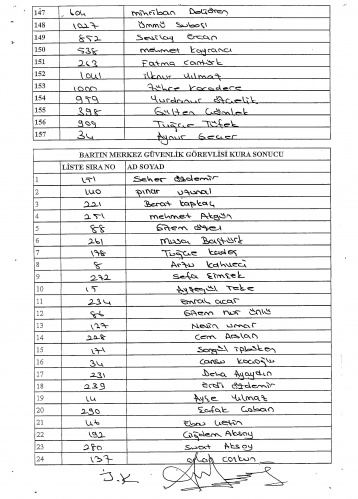 147 604 mihriban
148 1027 ümmü Subaşı
149 852 Sevilay Ercan
150 538 mehmet Kayrancı
151 263 Fatma Cantürk
152 1041 ilknur yılmaz
153 1000 Zühre Karadere
154 959 Yurdanur Özçelik
155 398 Gülten Çömlek
156 909 Tuğçe Tüfek
157 34 Aynur Geçer
BARTIN MERKEZ GÜVENLİK GÖREVLİSİ KURA SONUCU
LİSTE SIRA NO AD SOYAD
1 151 Seher Özdemir
2 140 pınar uzunal
3 221 Berat Kapkaç
4 251 mehmet Akgün
5 88 Gizem Özel
6 261 Musa Baştürk
7 198 Tuğçe
8 8 Arzu Kahveci
9 272 Sefa Şimşek
10 15 Ayşegül Teke
11 234 Emrah acar
12 86 Gizem nur ünlü
13 127 Nesrin umar
14 228 Cem Arslan
15 171 Songül ipbüken
16 34 Cansu
17 231 Deha Ayaydın
18 239 Erdi Özdemir
19 14 Ayşe Yılmaz
20 290 Şafak Çoban
21 46 Ebru çetin
22 192 Çiğdem Aksoy
23 280 Suat Aksoy
24 137 orhan coşkun
İ.K